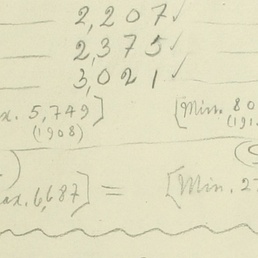 2,207✓
2,375✓
3,021✓
x. 5,749] [Min. 80
(1908) (191
ax. 6,687] = [Min. 27